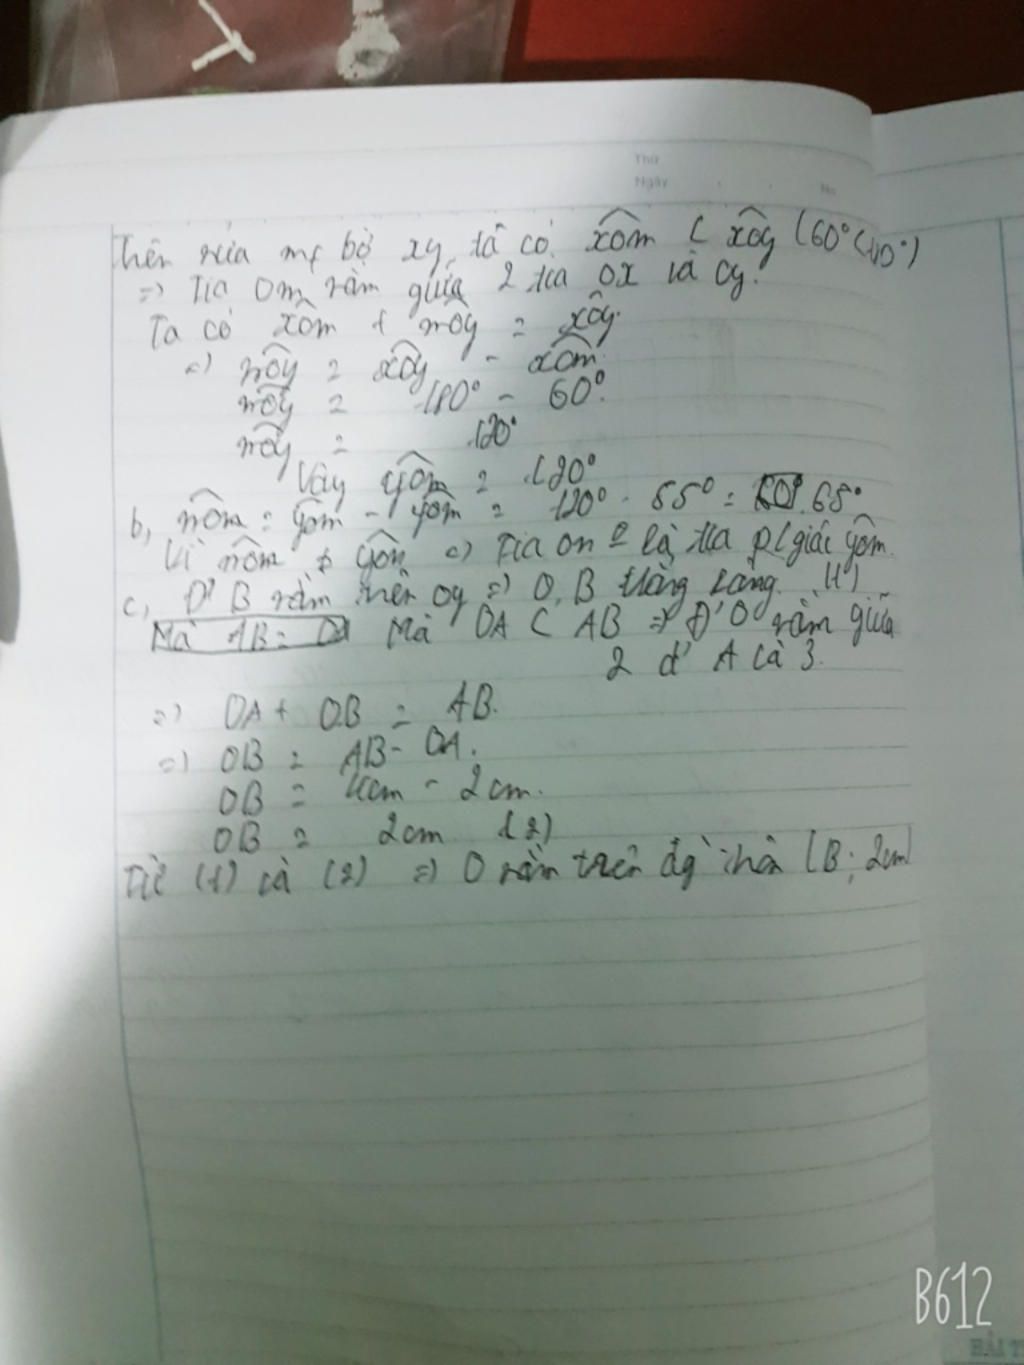 Thứ
Ngày No
Trên nửa mf bờ xy, ta có xôm < xôy (60° < 180°)
=> Tia Om nằm giữa 2 tia Ox và Oy.
Ta có xôm + môy = xôy
=> môy = xôy - xôm
môy = 180° - 60°
môy = 120°
Vậy yôm = 120°
b, nôm = yôm - yôm = 120° - 55° = 65°
Vì nôm ≠ yôn => Tia on là tia p/giác yôm
c, Đ' B nằm trên oy => O, B thẳng hàng. (1)
Mà AB = OA Mà OA < AB => Đ' O nằm giữa
2 đ' A và B.
=> OA + OB = AB.
=> OB = AB - OA.
OB = 4cm - 2cm.
OB = 2cm (2)
Từ (1) và (2) => O nằm trên đg' (B; 2cm)
B612
HẢI T